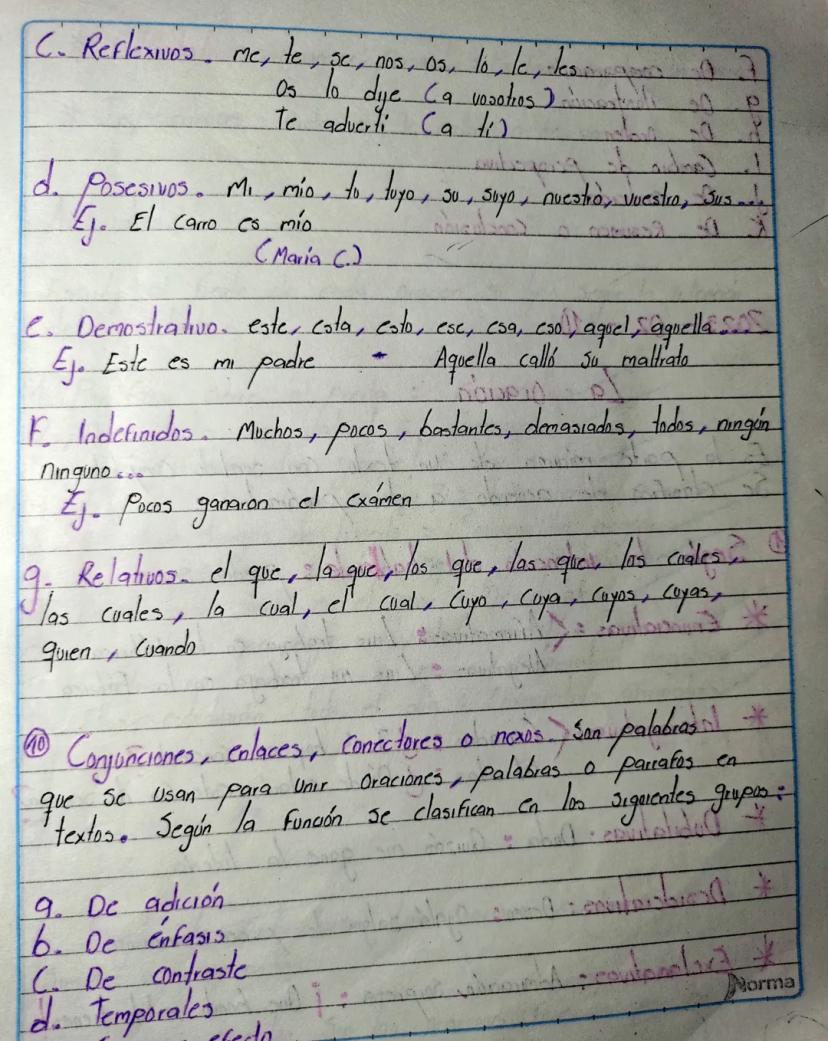 C. Reflexivos. me, te, se, nos, os, lo, le, les
Os lo dije (a vosotros)
Te advertí (a tí)
d. Posesivos. Mi, mío, tu, tuyo, su, suyo, nuestro, vuestro, sus...
Ej. El carro es mío
(María C.)
e. Demostrativo. este, esta, esto, ese, esa, eso, aquel, aquella...
Ej. Este es mi padre - Aquella calló su maltrato
F. Indefinidos. Muchos, pocos, bastantes, demasiados, todos, ningún
ninguno...
Ej. Pocos ganaron el exámen
g. Relativos. el que, la que, los que, las que, los cuales,
las cuales, la cual, el cual, cuyo, cuya, cuyos, cuyas,
quien, cuando
10 Conjunciones, enlaces, conectores o nexos. Son palabras
que se usan para unir oraciones, palabras o parrafos en
textos. Según la función se clasifican en los siguientes grupos:
a. De adición
b. De énfasis
C. De contraste
d. Temporales
efecto
Norma